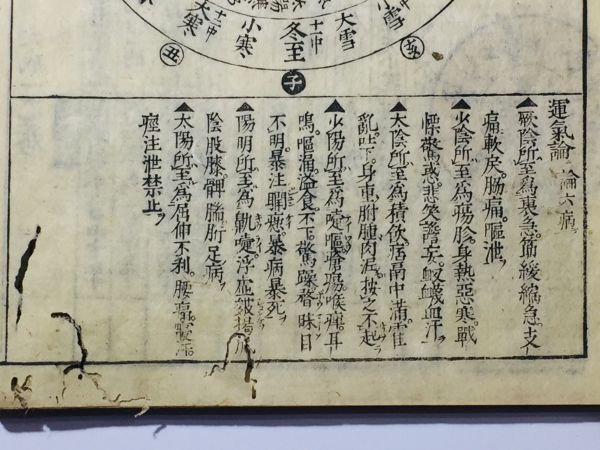 小雪
十中
大雪
十一中
冬至
小寒
十二中
大寒
亥
子
丑
運氣論 論六病
▲厥陰所至為裏急筋緩縮急支
痛軟戾脇痛嘔泄
▲少陰所至為瘍胗身熱惡寒戰
慄驚惑悲笑譫妄衂衊血汗
▲太陰所至為積飲痞鬲中滿霍
亂吐下身重胕腫肉泥按之不起
▲少陽所至為嚏嘔瘡瘍喉痺耳
鳴嘔涌溢食不下驚躁瞀昧目
不明暴注瞤瘛暴病暴死
▲陽明所至為鼽嚏浮虛皴揭尻
陰股膝髀腨胻足病
▲太陽所至為屈伸不利腰痛寢汗
痙注泄禁止